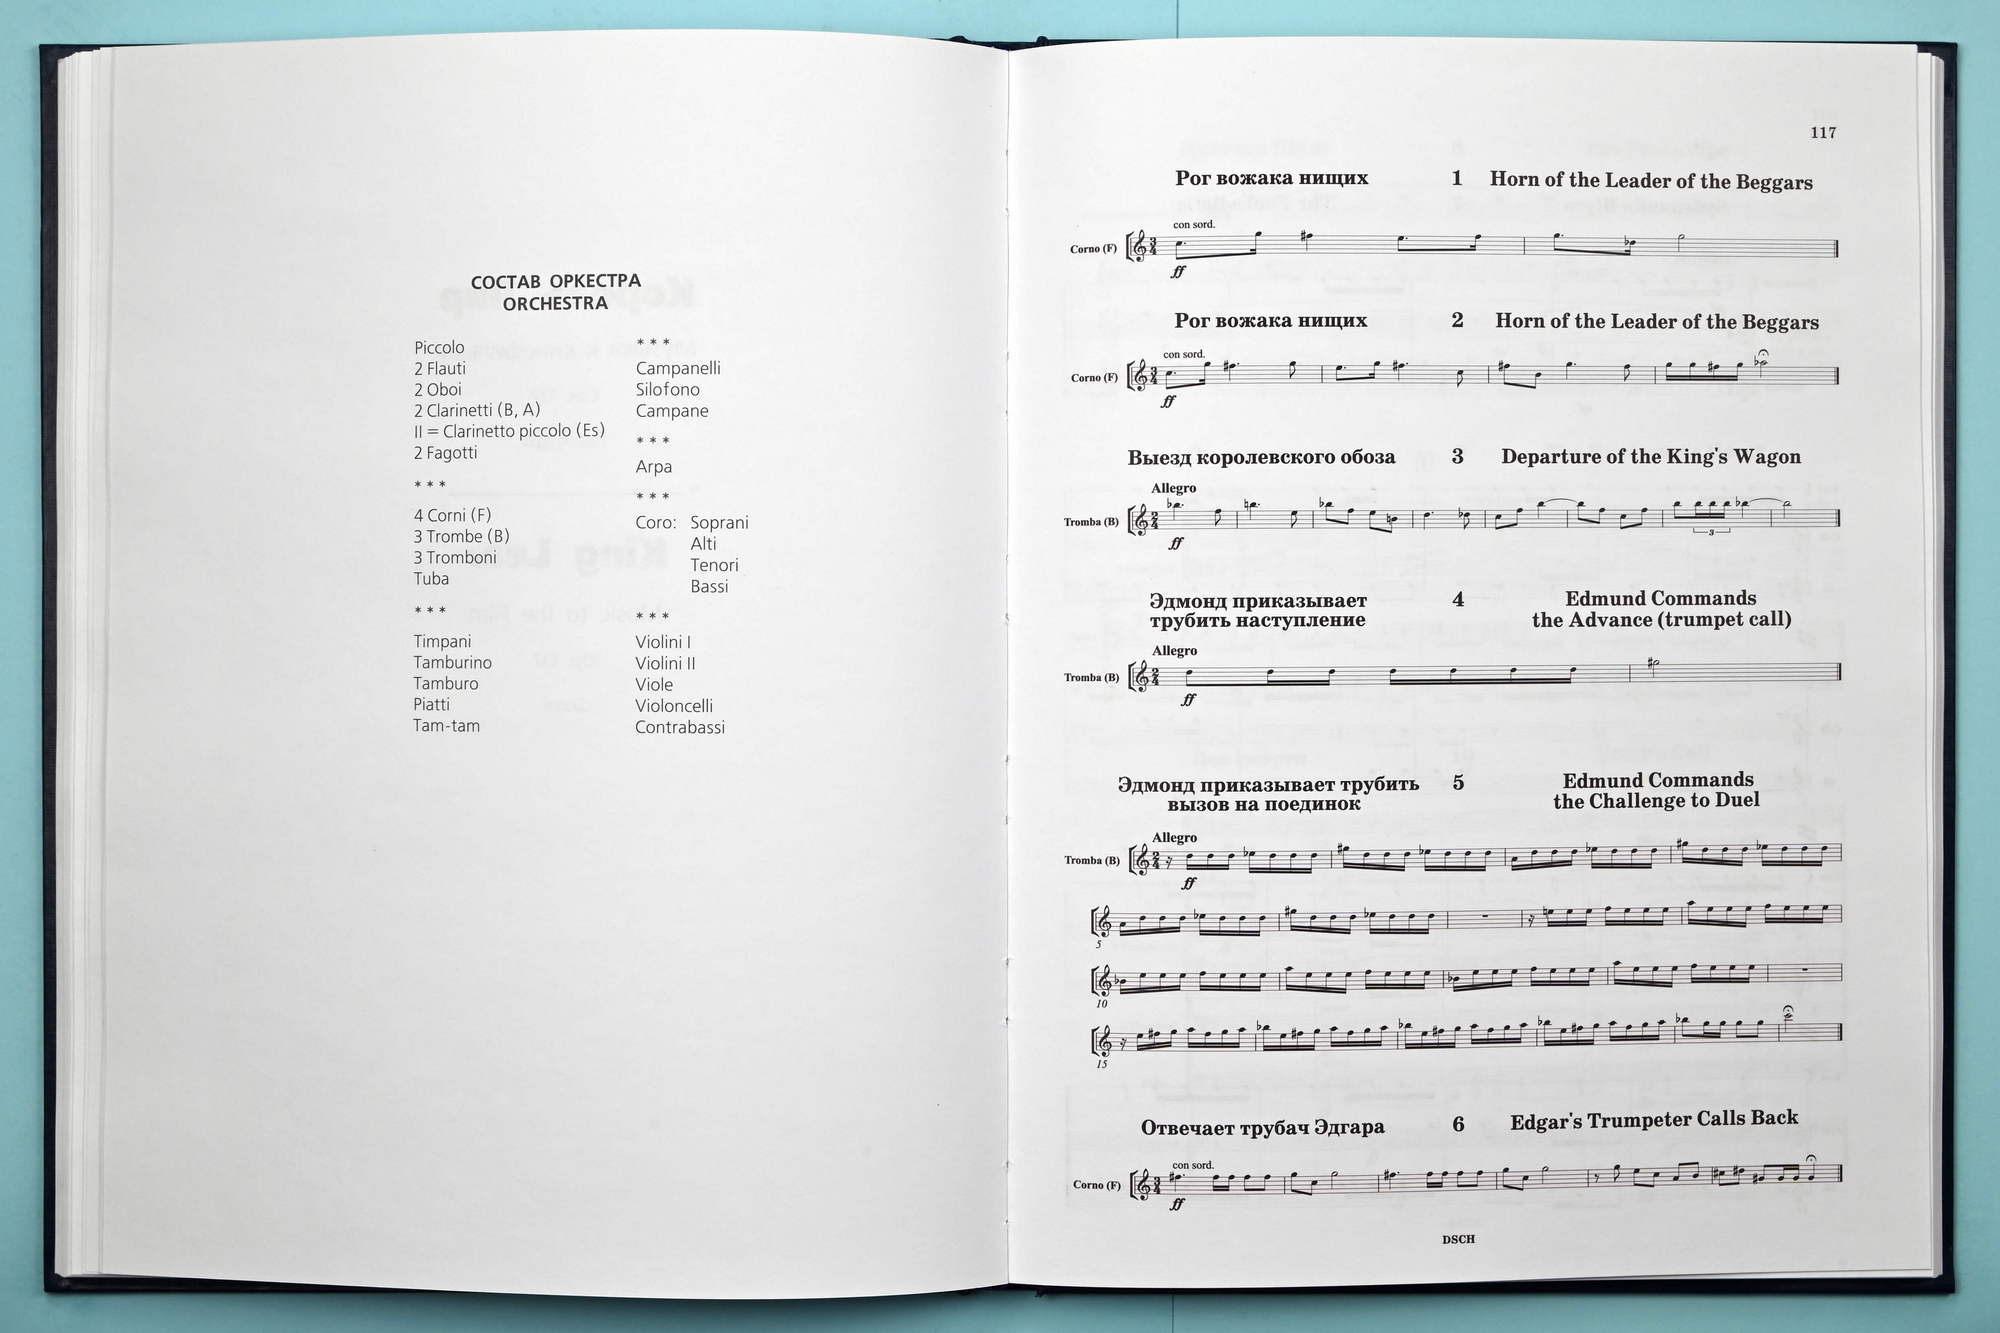 СОСТАВ ОРКЕСТРА
ORCHESTRA
Piccolo
2 Flauti
2 Oboi
2 Clarinetti (B, A)
II = Clarinetto piccolo (Es)
2 Fagotti
* * *
4 Corni (F)
3 Trombe (B)
3 Tromboni
Tuba
* * *
Timpani
Tamburino
Tamburo
Piatti
Tam-tam
* * *
Campanelli
Silofono
Campane
* * *
Arpa
* * *
Coro: Soprani
Alti
Tenori
Bassi
* * *
Violini I
Violini II
Viole
Violoncelli
Contrabassi
117
Рог вожака нищих 1 Horn of the Leader of the Beggars
con sord.
Corno (F)
ff
Рог вожака нищих 2 Horn of the Leader of the Beggars
con sord.
Corno (F)
ff
Выезд королевского обоза 3 Departure of the King's Wagon
Allegro
Tromba (B)
3
ff
Эдмонд приказывает 4 Edmund Commands
трубить наступление the Advance (trumpet call)
Allegro
Tromba (B)
ff
Эдмонд приказывает трубить 5 Edmund Commands
вызов на поединок the Challenge to Duel
Allegro
Tromba (B)
ff
5
10
15
Отвечает трубач Эдгара 6 Edgar's Trumpeter Calls Back
con sord.
Corno (F)
ff
DSCH